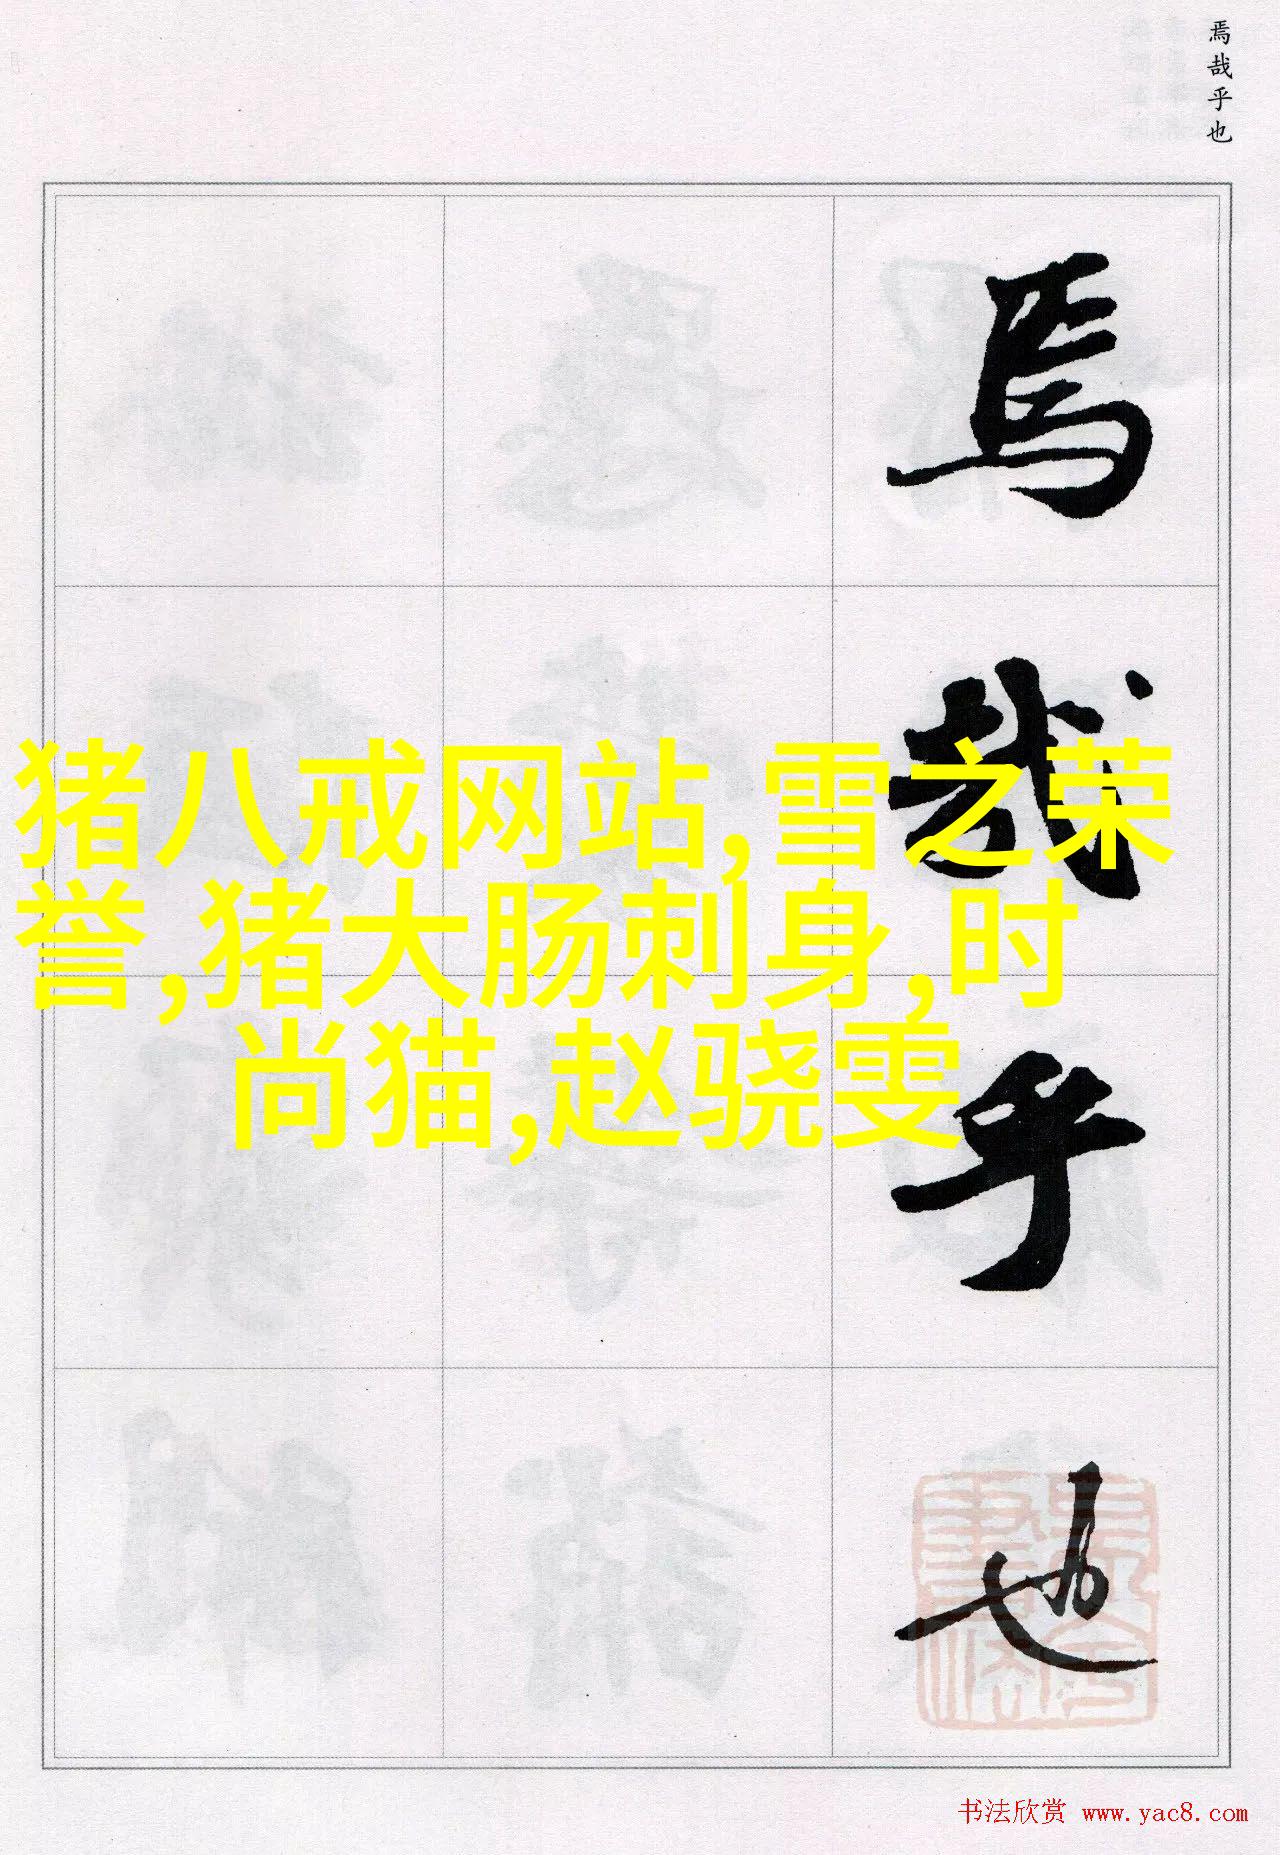 焉哉乎也
焉
哉
乎
也
猪八戒网站,雪之荣
誉,猪大肠刺身,时
尚猫,赵骁雯
书法欣赏 www.yac8.com